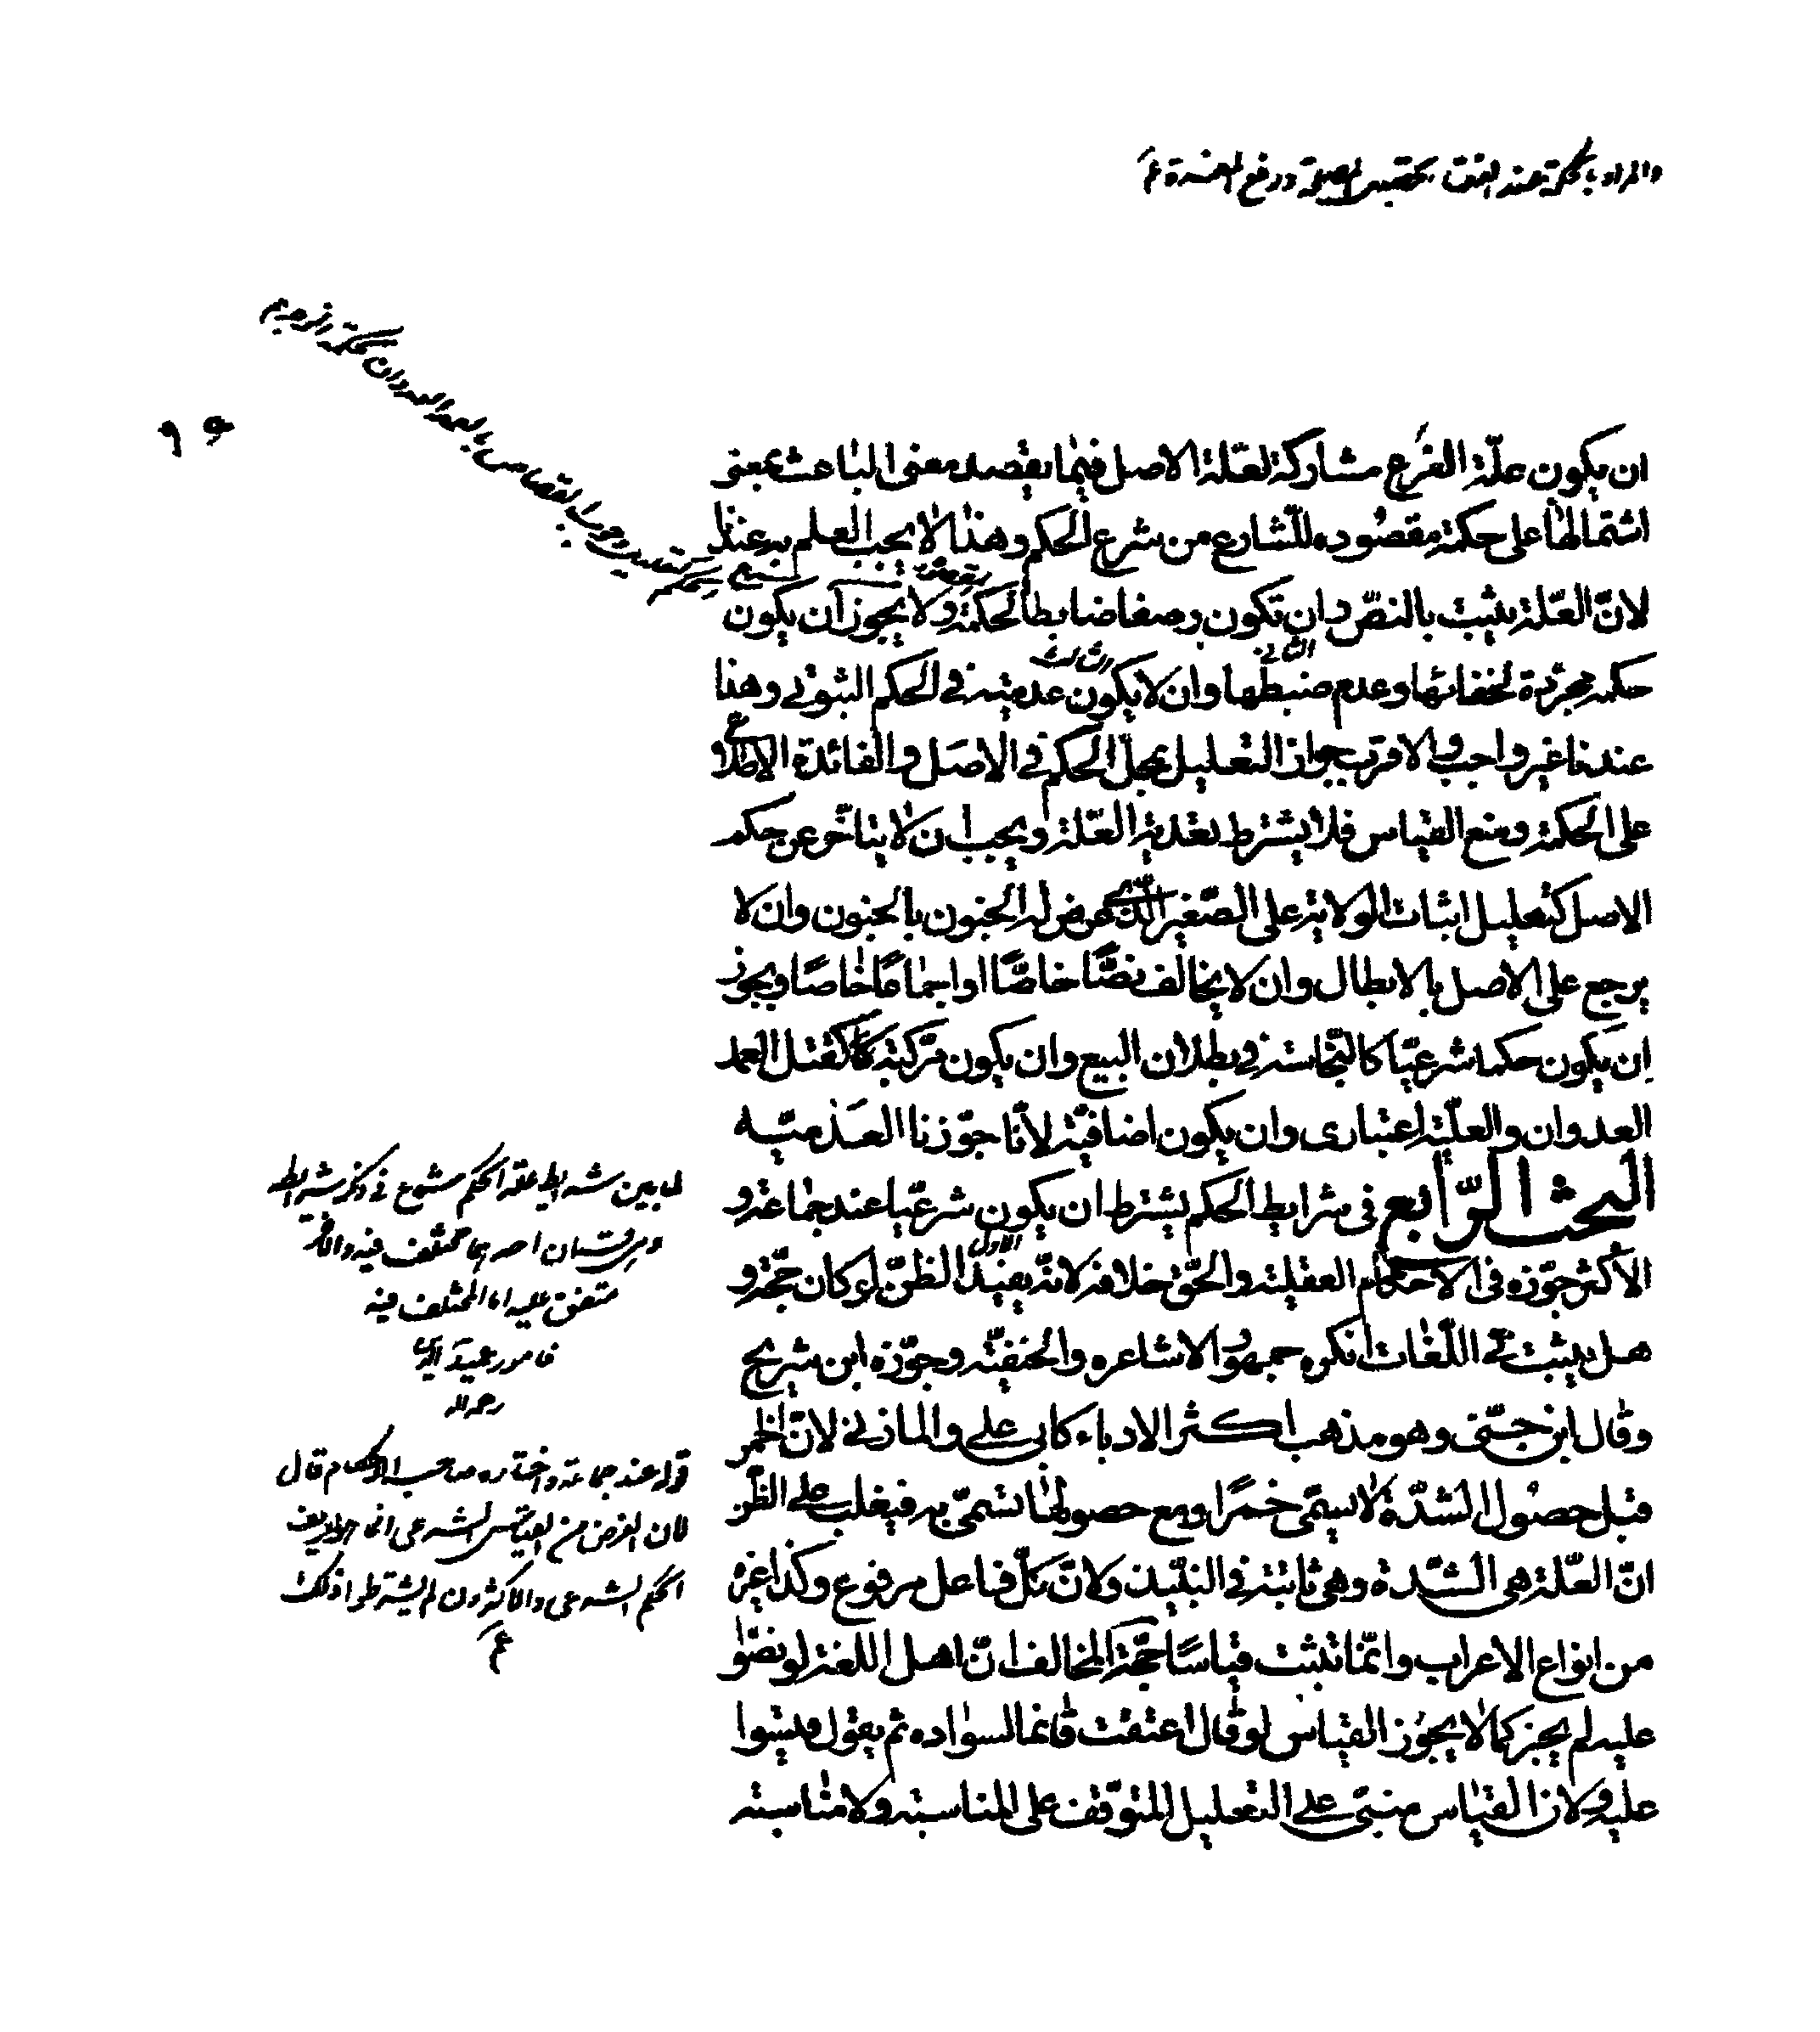 والمراد بالحكمة عند الفقهاء تحصيل المصلحة ودفع المفسدة
ان يكون علّة الفرع مشاركة لعلّة الاصل فيما يقصد معنى الباعث بمعنى
اشتمالها على حكمة مقصوده للشارع من شرع الحكم وهذا لا يجب العلم به عندنا
لانّ العلّة يثبت بالنصّ وان تكون وصفا ضابطا لحكمة ولا يجوز ان يكون
حكمة مجرّدة لخفائها وعدم ضبطها وان لا يكون عدميّة في الحكم الثبوتى وهذا
عندنا غير واجب والاقرب جواز التعليل بمحلّ الحكم في الاصل والفائدة الاطلاع
على الحكمة ومنع القياس فلا يشترط تعدية العلّة ويجب ان لا يتأخّر عن حكم
الاصل كتعليل اثبات الولاية على الصّغير الّذى عرض له الجنون بالجنون وان لا
يرجع على الاصل بالابطال وان لا يخالف نصّا خاصّا او اجماعا خاصا ويجوز
ان يكون حكما شرعيّا كالنّجاسة في بطلان البيع وان يكون مركبة كالقتل العمد
العدوان والعلّية اعتبارى وان يكون اضافيّة لانّا جوّزنا العدميّه
البحث الرّابع في شرايط الحكم يشترط ان يكون شرعيّا عند جماعة و
الأكثر جوّزه في الاحكام العقلية والحقّ خلافه لانّه يفيد الظنّ لو كان حجّة و
الاول
هل يثبت في اللّغات انكره جمهور الاشاعره والحنفيّه وجوّزه ابن شريح
وقال ابن جنّى وهو مذهب اكثر الادباء كابى على والمازنى لانّ الخمر
قبل حصول الشدّة لا يسمّى خمرا ومع حصولها تسمّى به فيغلب على الظّن
انّ العلّة هى الشدّة وهى ثابتة في النّبيذ ولانّ كلّ فاعل مرفوع وكذا غيره
من انواع الاعراب وانّما تثبت قياسا حجّة المخالف انّ اهل اللغة لو نصّوا
عليه لم يجز كما لا يجوز القياس لو قال اعتقت غانما لسواده ثم يقول قيسوا
عليه ولان القياس مبنىّ على التعليل المتوّقف على المناسبة ولا مناسبة
لما بين شرايط علة الحكم شرع في ذكر شرايطه
وهى قسمان احدهما مختلف فيه والآخر
متفق عليه اما المختلف فيه
فامور عميد الدين
رحمه الله
قوله عند جماعة واختاره صاحب الاحكام قال
لان الغرض من القياس الشرعى انما هو تعريف
الحكم الشرعى والاكثرون لم يشترطوا ذلك